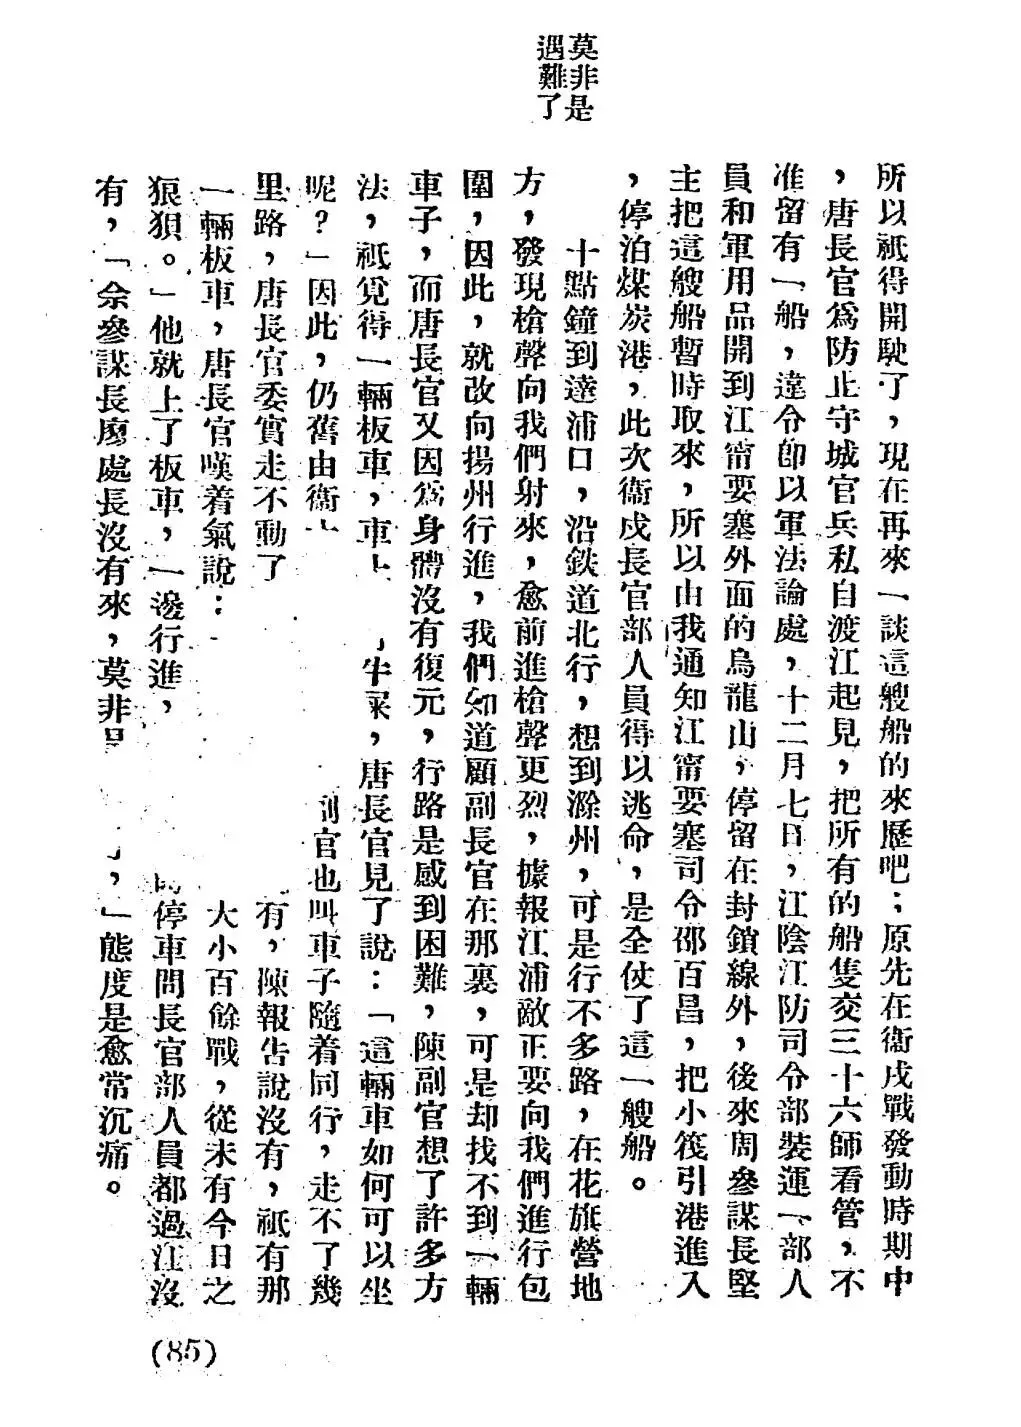 莫非是
遇難了
所以祇得開駛了，現在再來一談這艘船的來歷吧；原先在衞戍戰發動時期中
，唐長官爲防止守城官兵私自渡江起見，把所有的船隻交三十六師看管，不
准留有一船，違令卽以軍法論處，十二月七日，江陰江防司令部裝運一部人
員和軍用品開到江甯要塞外面的烏龍山，停留在封鎖線外，後來周參謀長堅
主把這艘船暫時取來，所以由我通知江甯要塞司令邵百昌，把小筏引港進入
，停泊煤炭港，此次衞戍長官部人員得以逃命，是全仗了這一艘船。
十點鐘到達浦口，沿鉄道北行，想到滁州，可是行不多路，在花旗營地
方，發現槍聲向我們射來，愈前進槍聲更烈，據報江浦敵正要向我們進行包
圍，因此，就改向揚州行進，我們知道顧副長官在那裏，可是却找不到一輛
車子，而唐長官又因爲身體沒有復元，行路是感到困難，陳副官想了許多方
法，祇覓得一輛板車，車上牛屎，唐長官見了說：「這輛車如何可以坐
呢？」因此，仍舊由衞副官也叫車子隨着同行，走不了幾
里路，唐長官委實走不動了有，陳報告說沒有，祇有那
一輛板車，唐長官嘆着氣說：大小百餘戰，從未有今日之
狼狽。」他就上了板車，一邊行進，停車問長官部人員都過江沒
有，「佘參謀長廖處長沒有來，莫非是，」態度是愈常沉痛。
(85)